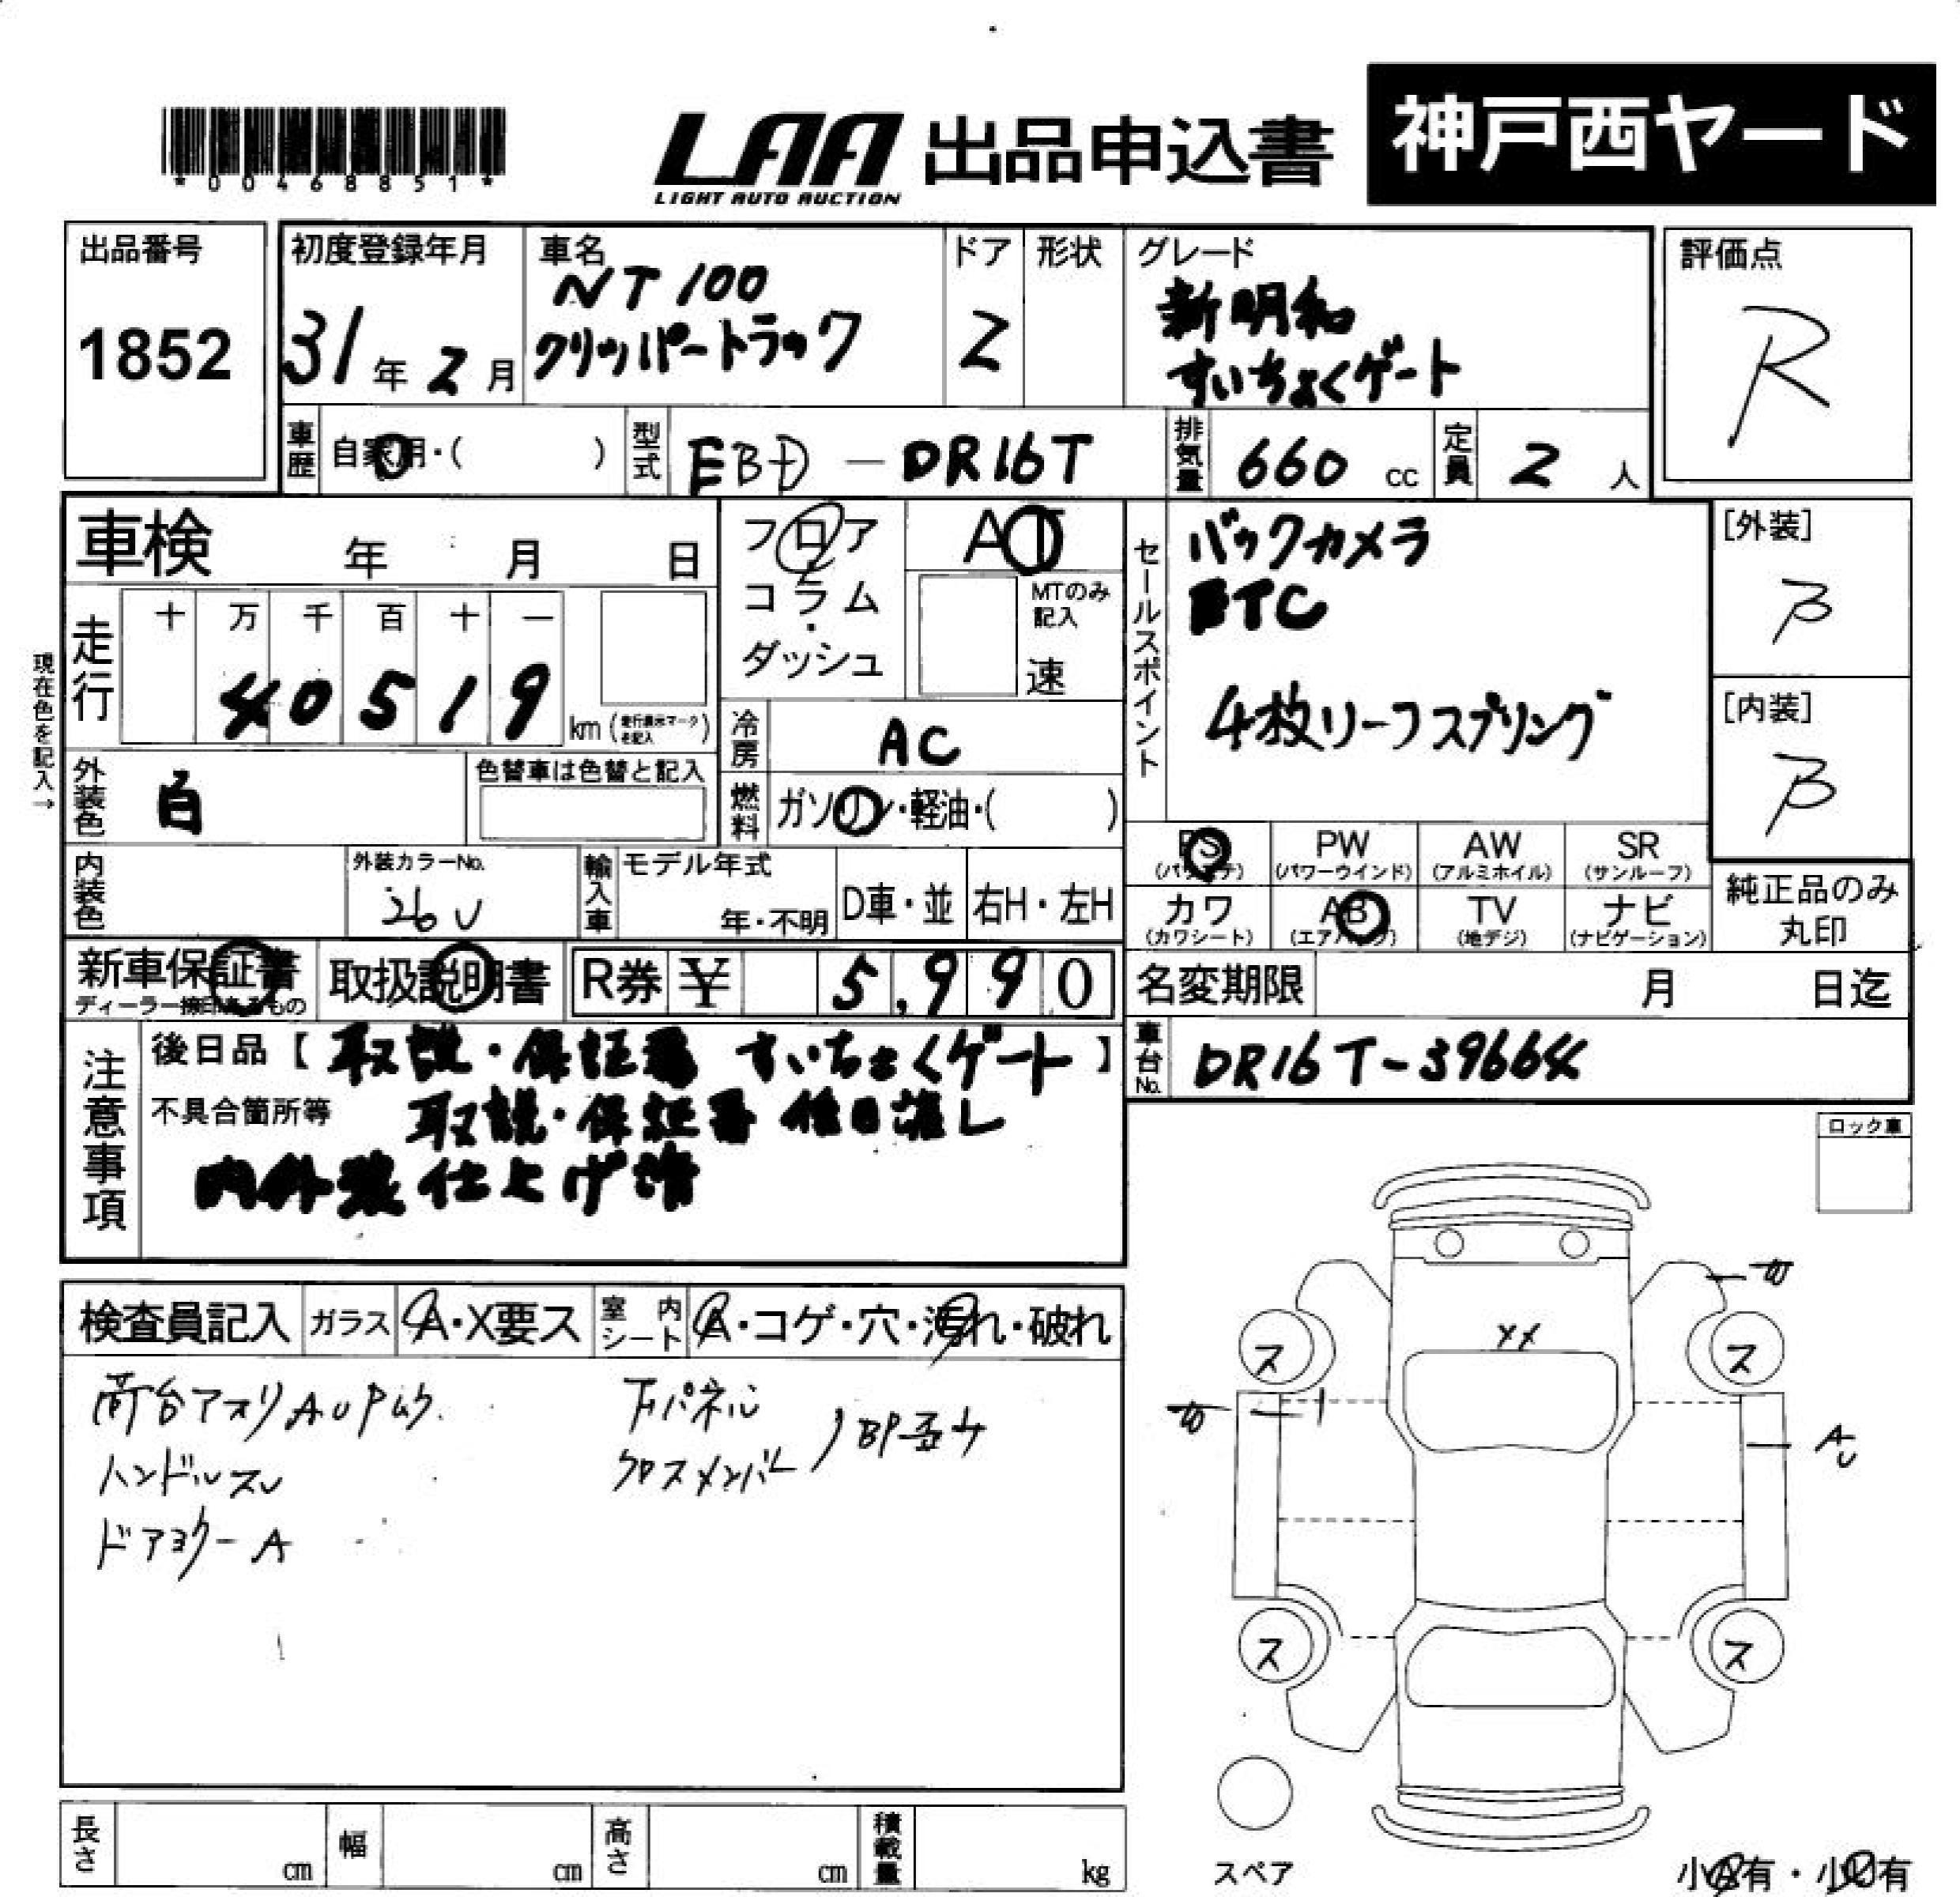 *00468851*
LAA 出品申込書 神戸西ヤード
LIGHT AUTO AUCTION
出品番号 1852
初度登録年月 31年2月
車名 NT100
クリッパートラック
ドア 2
形状
グレード 新明和
すいちょくゲート
評価点 R
車歴 自家用・( )
型式 EBD-DR16T
排気量 660 cc
定員 2 人
車検 年 月 日
フロア
コラム
ダッシュ
AT
MTのみ
記入
速
現在色を記入→
走行 十 万 千 百 十 一
40519
km (走行表示マークを記入)
冷房 AC
燃料 ガソリン・軽油・( )
外装色 白
色替車は色替と記入
内装色
外装カラーNo.
26U
輸入車 モデル年式
年・不明 D車・並 右H・左H
セールスポイント
バックカメラ
ETC
4枚リーフスプリング
[外装] B
[内装] B
PS PW AW SR
(パワステ) (パワーウインド) (アルミホイル) (サンルーフ)
カワ AB TV ナビ
(カワシート) (エアバッグ) (地デジ) (ナビゲーション)
純正品のみ
丸印
新車保証書
ディーラー捺印あるもの
取扱説明書
R券 ¥ 5,990
名変期限 月 日迄
車台No. DR16T-39664
注意事項
後日品【取説・保証書 すいちょくゲート】
不具合箇所等 取説・保証書 後日渡し
内外装仕上げ済
ロック車
検査員記入 ガラス A・X要ス 室内シート A・コゲ・穴・汚れ・破れ
荷台アオリAUPムラ
ハンドルスレ
ドアヨクーA
下パネル
クロスメンバー
BP歪み
XX
ス ス
AU
ス ス
スペア
小A有・小U有
長さ cm 幅 cm 高さ cm 積載量 kg